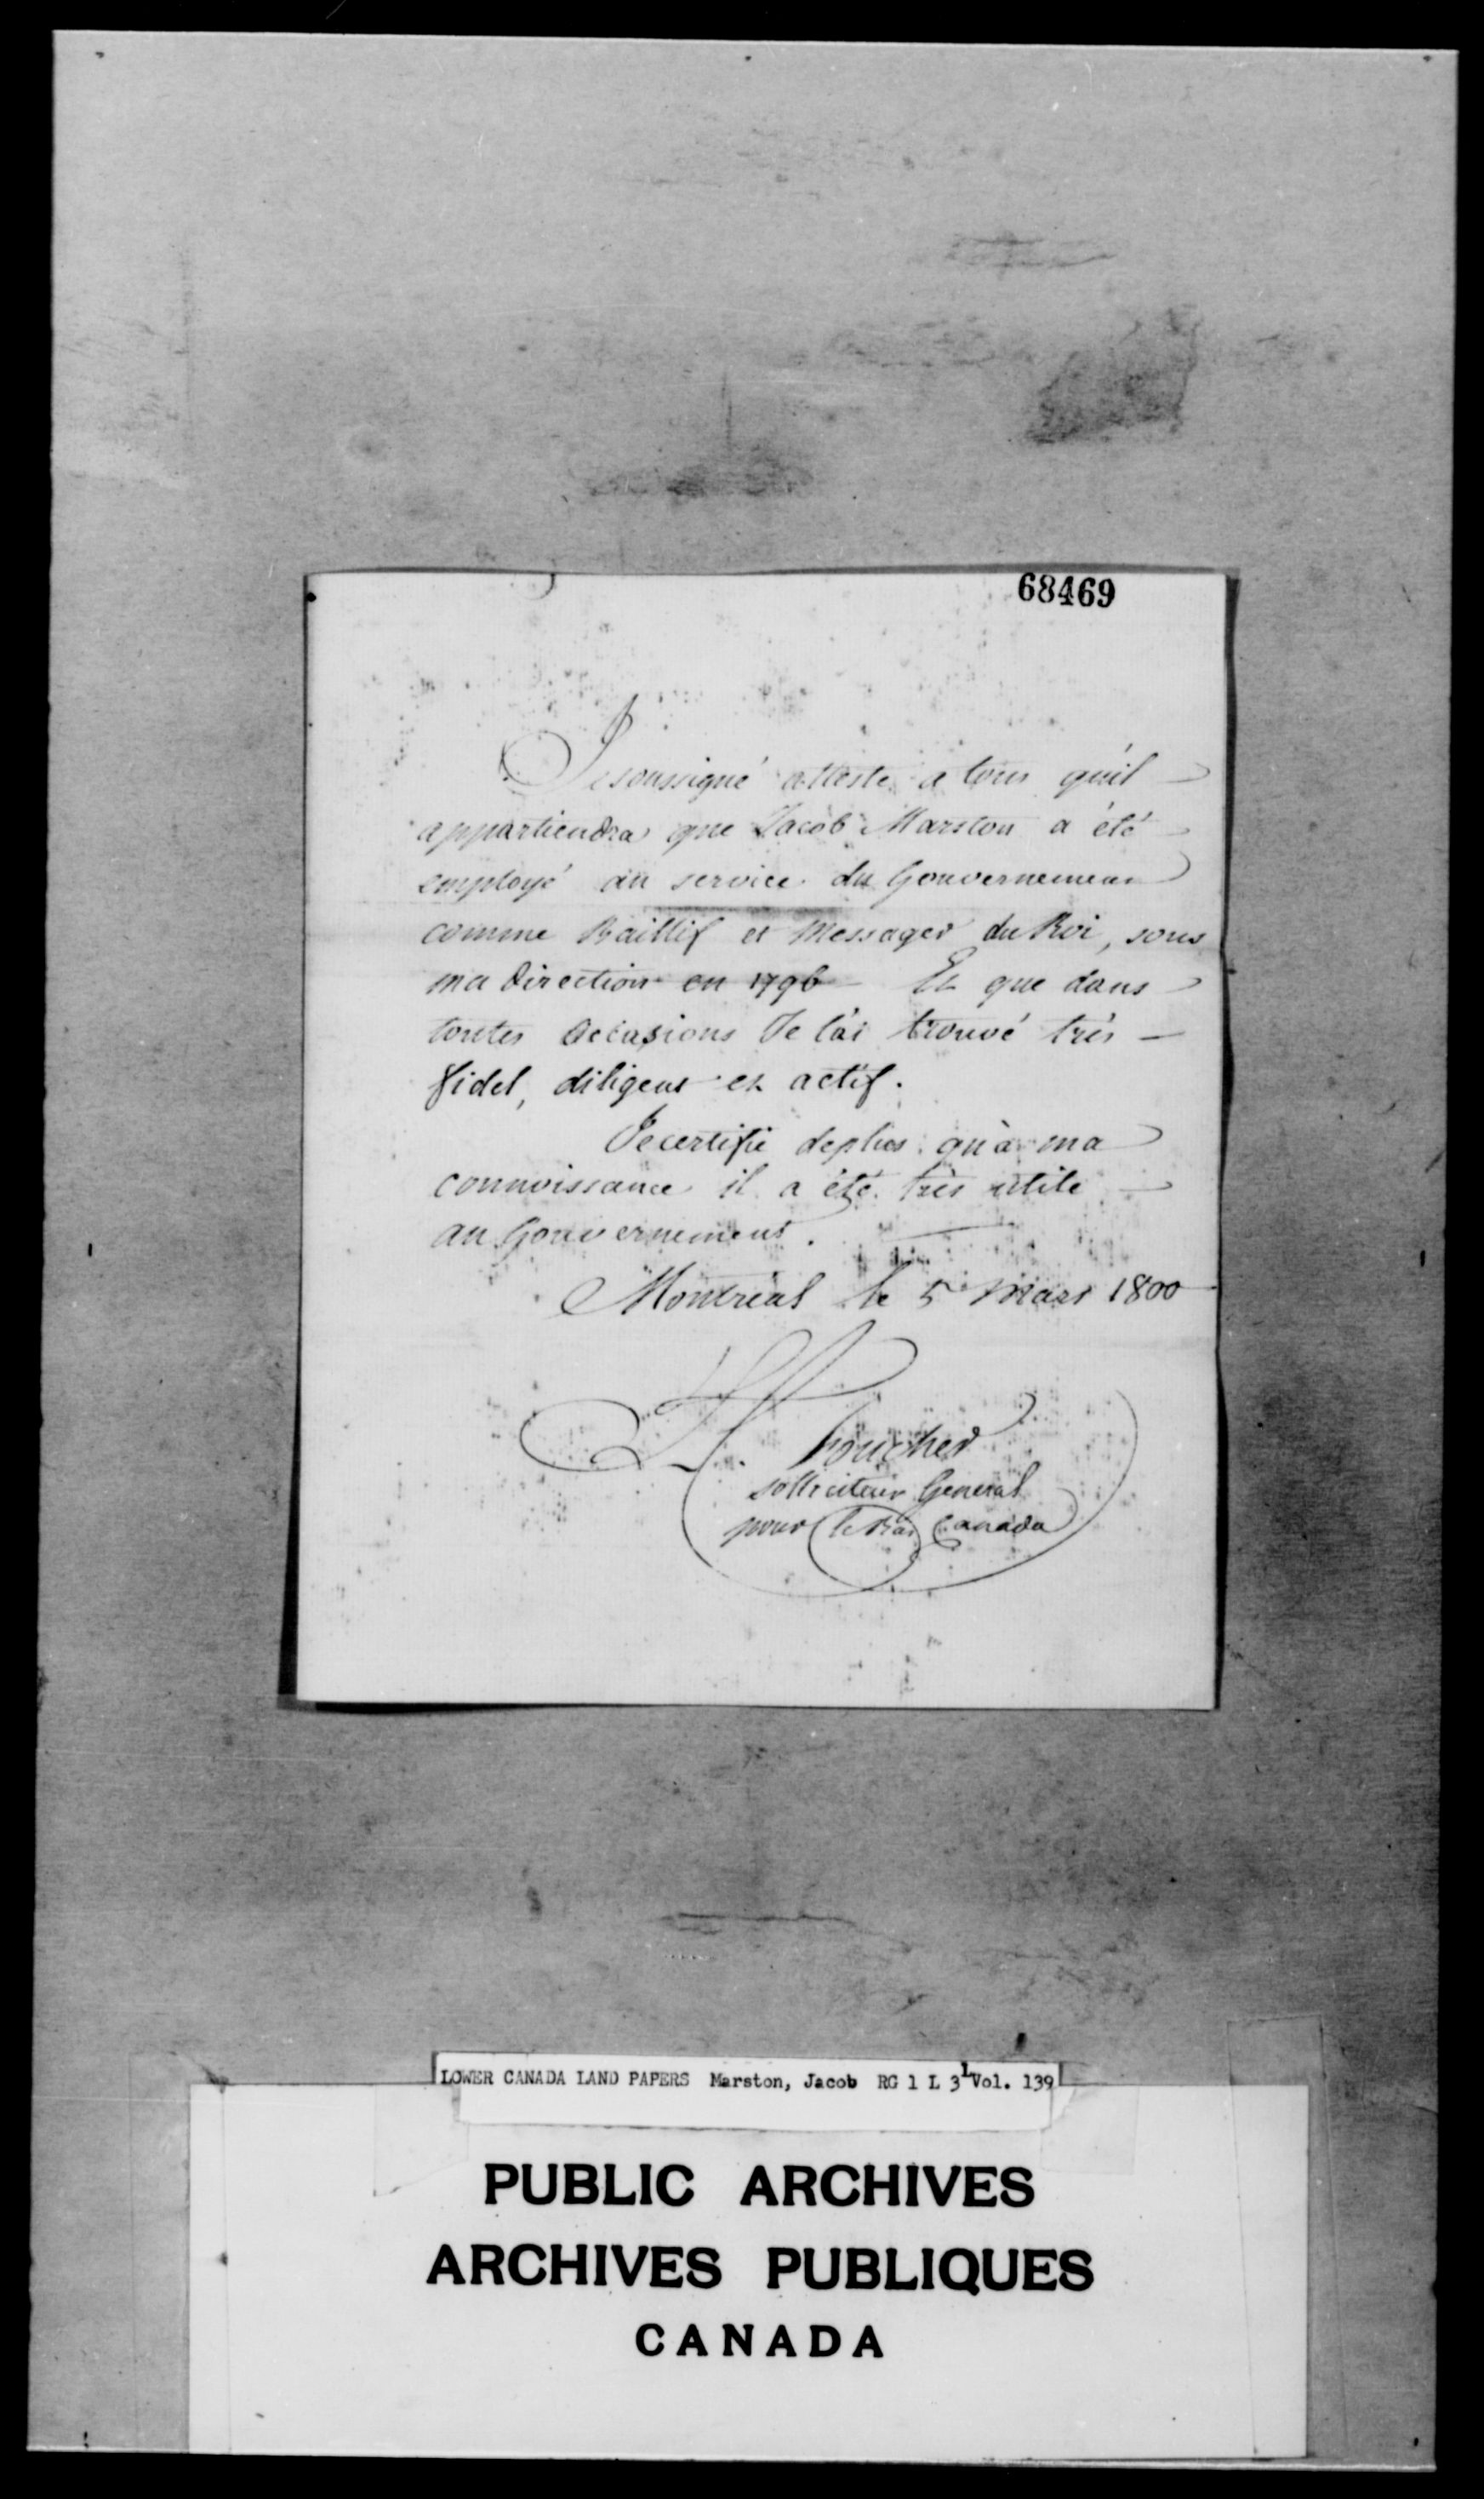 68469
Je soussigné atteste a tous qu'il
appartiendra que Jacob Marston a été
employé au service du Gouvernement
comme Baillif et Messager du Roi, sous
ma Direction en 1796 Et que dans
toutes Occasions Je l'ai trouvé très
fidel, diligent et actif.
Je certifie deplus qu'à ma
connoissance il a été très utile
au Gouvernement.
Montréal le 5 Mars 1800
Foucher
solliciteur General
pour le Bas Canada
LOWER CANADA LAND PAPERS Marston, Jacob RG 1 L 3 L Vol. 139
PUBLIC ARCHIVES
ARCHIVES PUBLIQUES
CANADA